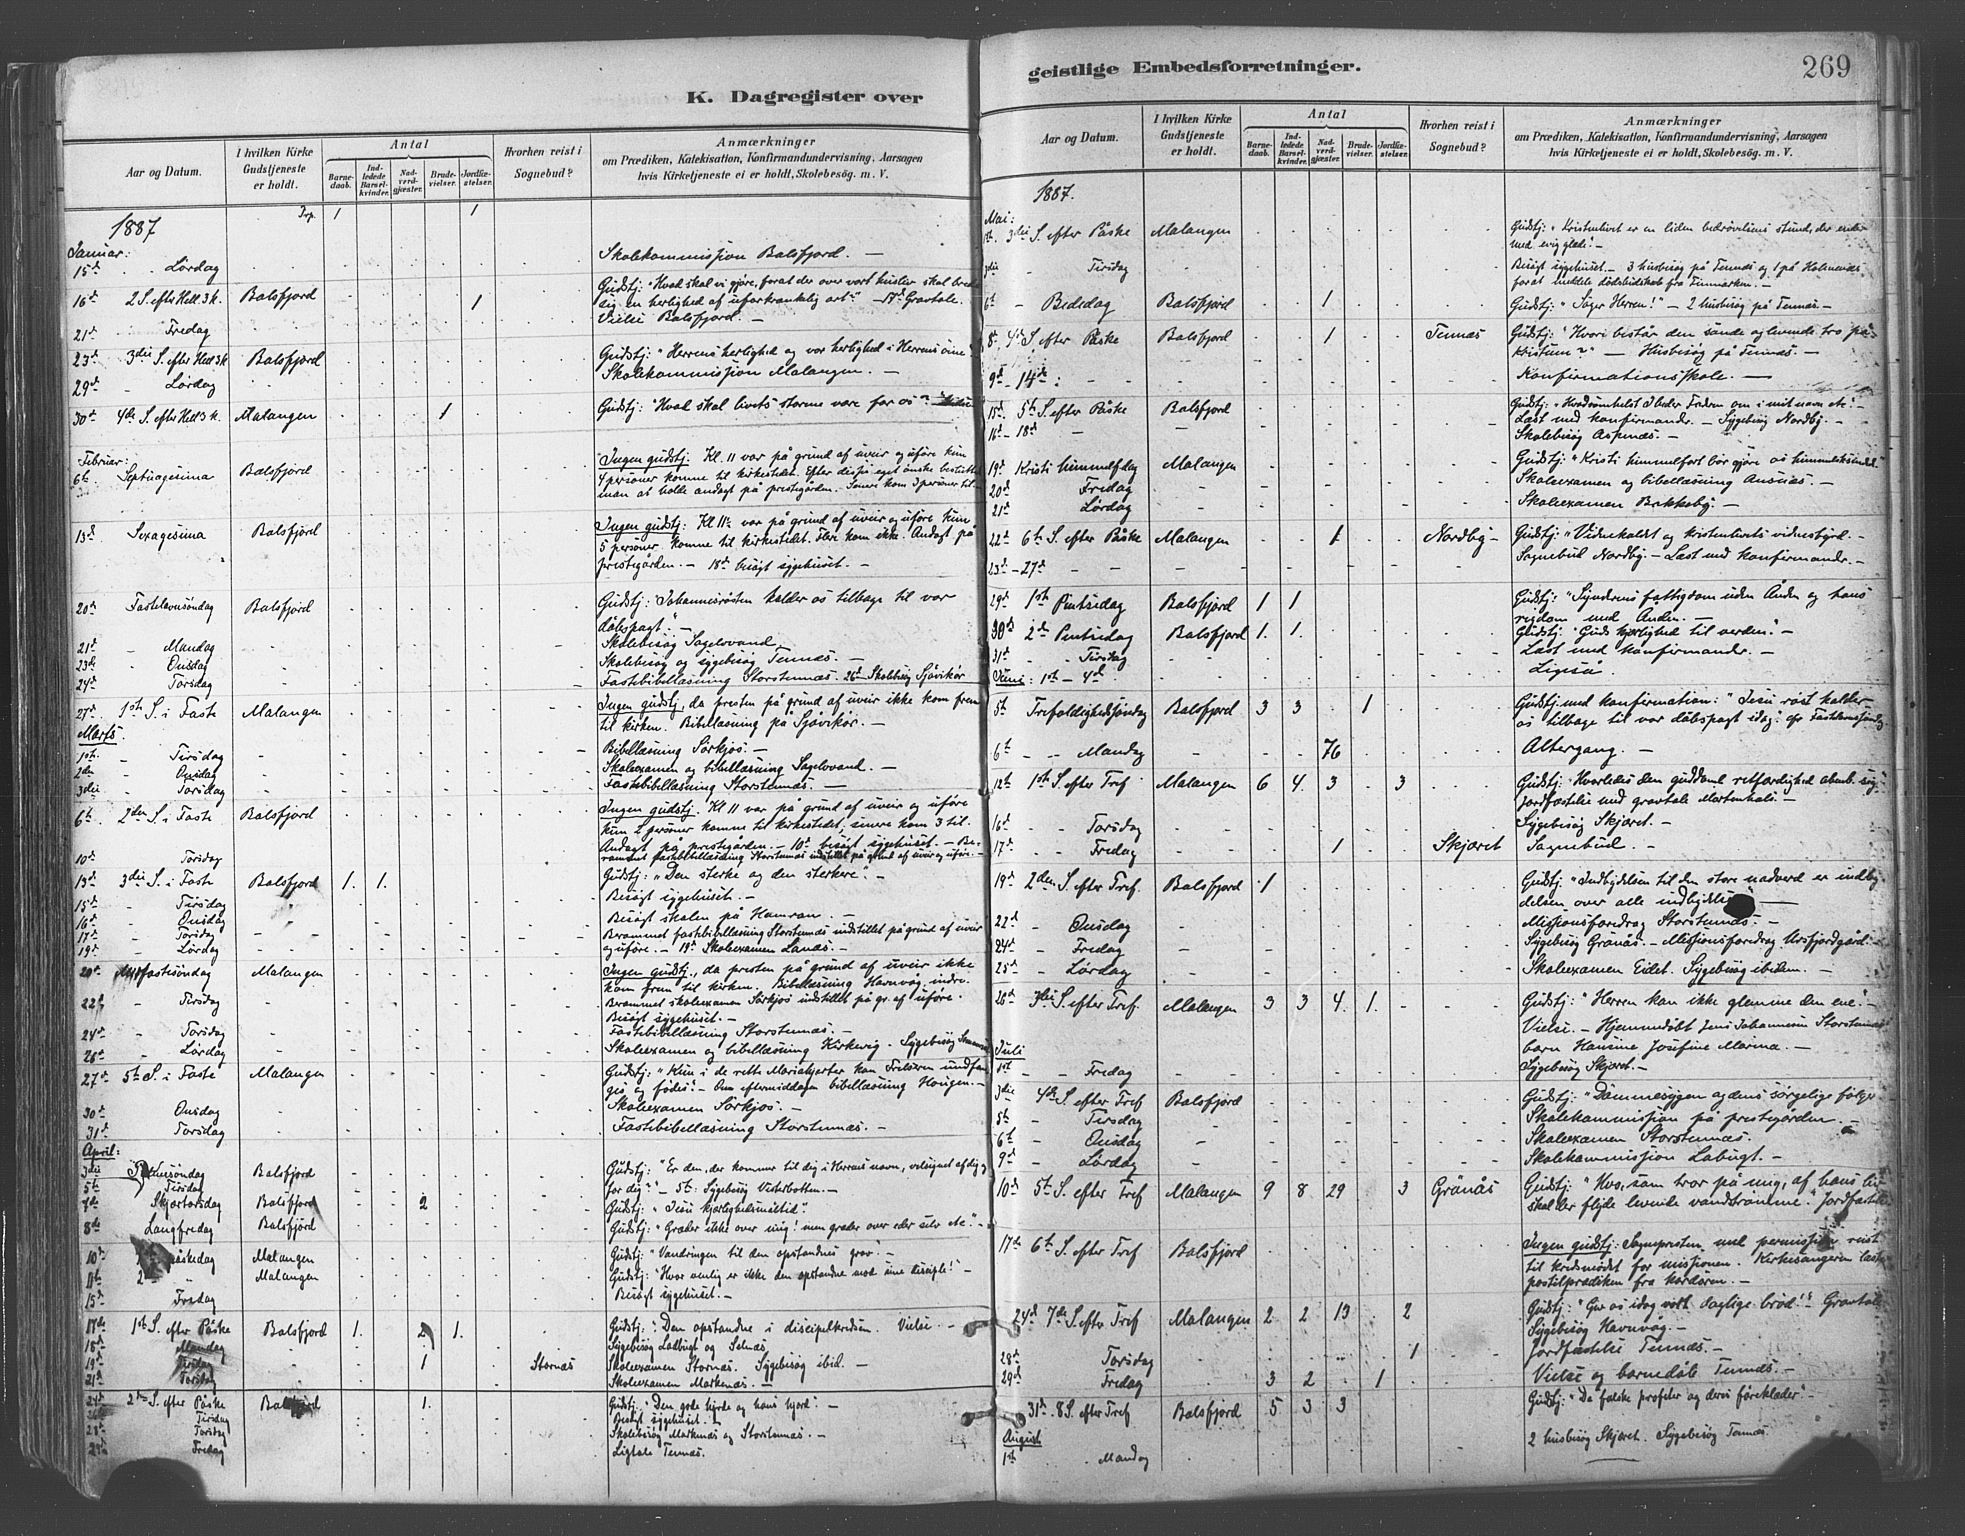 K. Dagregister over
Aar og Datum. I hvilken Kirke Gudstjeneste er holdt. Antal Barnedaab. Indledede Barselkvinder. Nadverdgjæster. Brudevielser. Jordfæstelser. Hvorhen reist i Sognebud?
Anmærkninger
om Prædiken, Katekisation, Konfirmandundervisning, Aarsagen
hvis Kirketjeneste ei er holdt, Skolebesøg. m. V.
Trp. 1 1
1887
Januar:
15de Lørdag Skolekommission Balsfjord. —
16de 2 S. efter Hell. 3 k. Balsfjord 1 Gudstj: "Hvad skal vi gjøre, forat der over vort huslev skal brede
sig en herlighed af uforkrænkelig art" — 17de Gravtale.
21de Fredag Vielse Balsfjord. —
23de 3die S. efter Hell 3 k. Balsfjord Gudstj: "Herrens herlighed og vor herlighed i Herrens øine".
29de Lørdag Skolekommission Malangen. —
30te 4de S. efter Hell 3 k. Malangen 1 Gudstj: "Hvad skal livets storme være for os?"
Februar:
6te Septuagesima Balsfjord Ingen gudstj: Kl. 11 var på grund af uveir og uføre kun
4 personer komne til kirkestedet. Efter disses eget ønske besluttet
man at holde andagt på prestegården. Senere kom 3 personer til
13de Sexagesima Balsfjord Ingen gudstj: Kl 11 var på grund af uveir og uføre kun
5 personer komne til kirkestedet. Flere kom ikke. Andagt på
prestegården. — 18de besøgt sygehuset. —
20de Fastelavnsøndag Balsfjord Gudstj: "Johannesrøsten kalder os tilbage til vor
dåbspagt". —
21de " Mandag Skolebesøg Sagelvvand.
23de " Onsdag Skolebesøg og sygebesøg Tennæs. —
24de Torsdag Fastebibellæsning Storstennæs. 26de Skolebesøg Sjåvikør
27de 1ste S. i Faste Malangen Ingen gudstj, da presten på grund af uveir ikke kom frem
til kirken. Bibellæsning på Sjåvikør. —
Marts.
1ste " Tirsdag Bibellæsning Sørkjos. —
2den " Onsdag Skoleexamen og bibellæsning Sagelvvand. —
3die " Torsdag Fastebibellæsning Storstennæs. —
6te 2den S. i Faste Balsfjord Ingen gudstj. Kl 11 var på grund af uveir og uføre
kun 2 personer komne til kirkestedet, senere kom 3 til.
Andagt på prestegården. — 10de besøgt sygehuset. — Be-
10de Torsdag rammet fastebibellæsning Storstennæs indstillet på grund af uveir og uføre. —
13de 3die S. i Faste Balsfjord 1. 1. Gudstj: "Den sterke og den sterkere". —
15de " Tirsdag Besøgt sygehuset. —
16de Onsdag Besøgt skolen på Hamran. —
17de Torsdag Berammet fastebibellæsning Storstennæs indstillet på grund af uveir
19de Lørdag og uføre. — 19de Skoleexamen Lanæs. —
20de Midfastesøndag Malangen Ingen Gudstj., da presten på grund af uveir ikke
kom frem til kirken. Bibellæsning Havnvåg indre.
22de " Tirsdag Berammet skoleexamen Sørkjos indstillet på gr. af uføre.
Besøgt sygehuset. —
24de " Torsdag Fastebibellæsning Storstennæs. —
26de " Lørdag Skoleexamen og bibellæsning Kirkevig. — Sygebesøg
27de 5te S. i Faste Malangen Gudstj: "Kun i de rette Mariahjerter kan Frelseren undfan-
ges og fødes". — Om eftermiddagen bibellæsning Hougen. —
30te Onsdag Skoleexamen Sørkjos. —
31te Torsdag Fastebibellæsning Storstennæs. —
April:
3die Palmesøndag Balsfjord Gudstj: "Er den, der kommer til dig i Herrens navn, velsignet af dig og
5te Tirsdag for dig?" — 5te: Sygebesøg Vesterbotten. —
7de Skjærtorsdag Balsfjord 2 Gudstj: "Jesu kjærlighedsmåltid".
8de Langfredag Balsfjord Gudstj: "Græder ikke over mig! men græder over eder selv etc". —
10de 1ste Påskedag Malangen Gudstj: "Vandringen til den opstandnes grav". —
11te 2 " Malangen Gudstj: "Hvor venlig er ikke den opstandne mod sine disciple!" —
15de Fredag Besøgt sygehuset. —
17de 1ste S. efter Påske Balsfjord 1. 2 1. Gudstj: "Den opstandne i discipelkredsen. Vielse. —
18de Mandag Sygebesøg Ladbugt og Selnæs.
19de Tirsdag 1 Stornæs Skoleexamen Stornæs. Sygebesøg ibid. —
21de Torsdag Skoleexamen Markenæs. —
24de 2den S. efter Påske Balsfjord 1. Gudstj: "Den gode hyrde og hans hjord". —
26de Tirsdag Besøgt sygehuset. —
28de Torsdag Skolebesøg Markenæs og Storstennæs. —
29de Fredag Ligtale Tennæs.
geistlige Embedsforretninger. 269
Aar og Datum. I hvilken Kirke Gudstjeneste er holdt. Antal Barnedaab. Indledede Barselkvinder. Nadverdgjæster. Brudevielser. Jordfæstelser. Hvorhen reist i Sognebud?
Anmærkninger
om Prædiken, Katekisation, Konfirmandundervisning, Aarsagen
hvis Kirketjeneste ei er holdt, Skolebesøg. m. V.
1887.
Mai:
1ste 3die S. efter Påske Malangen Gudstj: "Kristenlivet er en liden bedrøvelsens stund, der ender
med evig glæde". —
3die " Tirsdag Besøgt sygehuset. — 3 husbesøg på Tennæs og 1 på Holmenæs
forat meddele dødsbudskab fra Finmarken. —
6te " Bededag Balsfjord 1 Gudstj: "Søger Herren!" — 2 husbesøg på Tennæs —
8de 4de S. efter Påske Balsfjord 1 Tennæs Gudstj: "Hvori består den sande og levende tro på
Kristum?" — Husbesøg på Tennæs. —
9de — 14de: Konfirmationsskole. —
15de 5te S. efter Påske Balsfjord Gudstj: "Hvadsomhelst I beder Faderen om i mit navn etc". —
16de — 18de Læst med konfirmander. — Sygebesøg Nordby. —
Skolebesøg Aspenæs. —
19de Kristi himmelfdag Malangen Gudstj: "Kristi himmelfart bør gjøre os himmelsksindede"
20de Fredag Skoleexamen og bibellæsning Ansnæs. —
21de Lørdag Skoleexamen Bakkeby. —
22de 6te S. efter Påske Malangen 1 Nordby — Gudstj: "Vidnekaldet og kristenlivets vidnesbyrd. —
23de — 27de Sognebud Nordby. — Læst med konfirmander. —
29de 1ste Pintsedag Balsfjord 1 1 Gudstj: "Synderens fattigdom uden Ånden og hans
rigdom med Ånden. —
30te 2den Pintsedag Balsfjord 1. 1. Gudstj: "Guds kjærlighed til verden". —
31te " Tirsdag Læst med konfirmander. —
Juni: 1ste — 4de Ligeså
5te Trefoldighedssøndag Balsfjord 3 3 1 Gudstj. med konfirmation: "Jesu røst kalder
os tilbage til vor dåbspagt idag: cfr Fastelavnssøndag
6te " Mandag 76 Altergang. —
12te 1ste S. efter Tref Malangen 6 4. 3 3 Gudstj: "Hvorledes den guddoml. retfærdighed åbenb. sig".
Jordfæstelse med gravtale Mortenhals. —
16de Torsdag Sygebesøg Skjæret. —
17de Fredag 1 Skjæret Sognebud. —
19de 2den S. efter Tref. Balsfjord 1 Gudstj: "Indbydelsen til den store nadverd er indby-
delsen over alle indbydelser". —
22de " Onsdag Missionsforedrag Storstennæs. —
24de " Fredag Sygebesøg Grønås. — Missionsforedrag Ursfjordgård. —
25de " Lørdag Skoleexamen Eidet. Sygebesøg ibidem. —
26de 3die S. efter Tref. Malangen 3 3 4. 1. Gudstj: "Herren kan ikke glemme den ene". —
Vielse. — Hjemmedøbt Jens Johannesens Storstennæs
barn Hansine Josefine Marina. —
Juli
1ste " Fredag Sygebesøg Skjæret. —
3die 4de S. efter Tref Balsfjord Gudstj: "Dømmesygen og dens sørgelige følger
5te " Tirsdag Skolekommission på prestegården. —
6te " Onsdag Skoleexamen Storstennæs.
9de " Lørdag Skolekommission Labugt. —
10de 5te S. efter Tref Malangen 9 8 29 3 Grønås Gudstj: "Hvo, som tror på mig, af hans liv
skal der flyde levende vandstrømme". Jordfæstelse
17de 6te S. efter Tref Balsfjord Ingen gudstj: Sognepresten med permission reist
til kredsmødet for missionen. Kirkesangeren læste
postilprædiken fra kordøren. —
24de 7de S. efter Tref Malangen 2 2 13 2 Gudstj: "Giv os idag vort daglige brød!" Gravtale
Sygebesøg Havnvåg. —
28de Torsdag 1 Jordfæstelse Tennæs. —
29de Fredag 3 2 1 Vielse og barnedåb Tennæs. —
31te 8 S. efter Tref Balsfjord 5 3 3 Gudstj: "De falske profeter og deres fåreklæder". —
August
1ste Mandag 2 husbesøg Skjæret. Sygebesøg Tennæs.